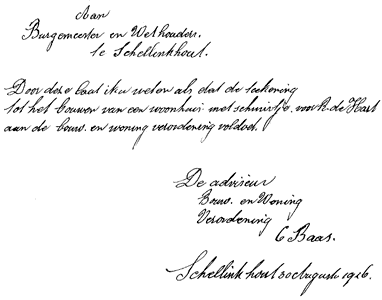 Aan
Burgemeester en Wethouders.
te Schellinkhout.
Door deze laat ik u weten als dat de teekening
tot het bouwen van een woonhuis met schuurtje voor K. de Hart
aan de bouw. en woning verordening voldoet
De adviseur
Bouw. en Woning
Verordening
C Baas.
Schellinkhout 30 Augustus 1926.